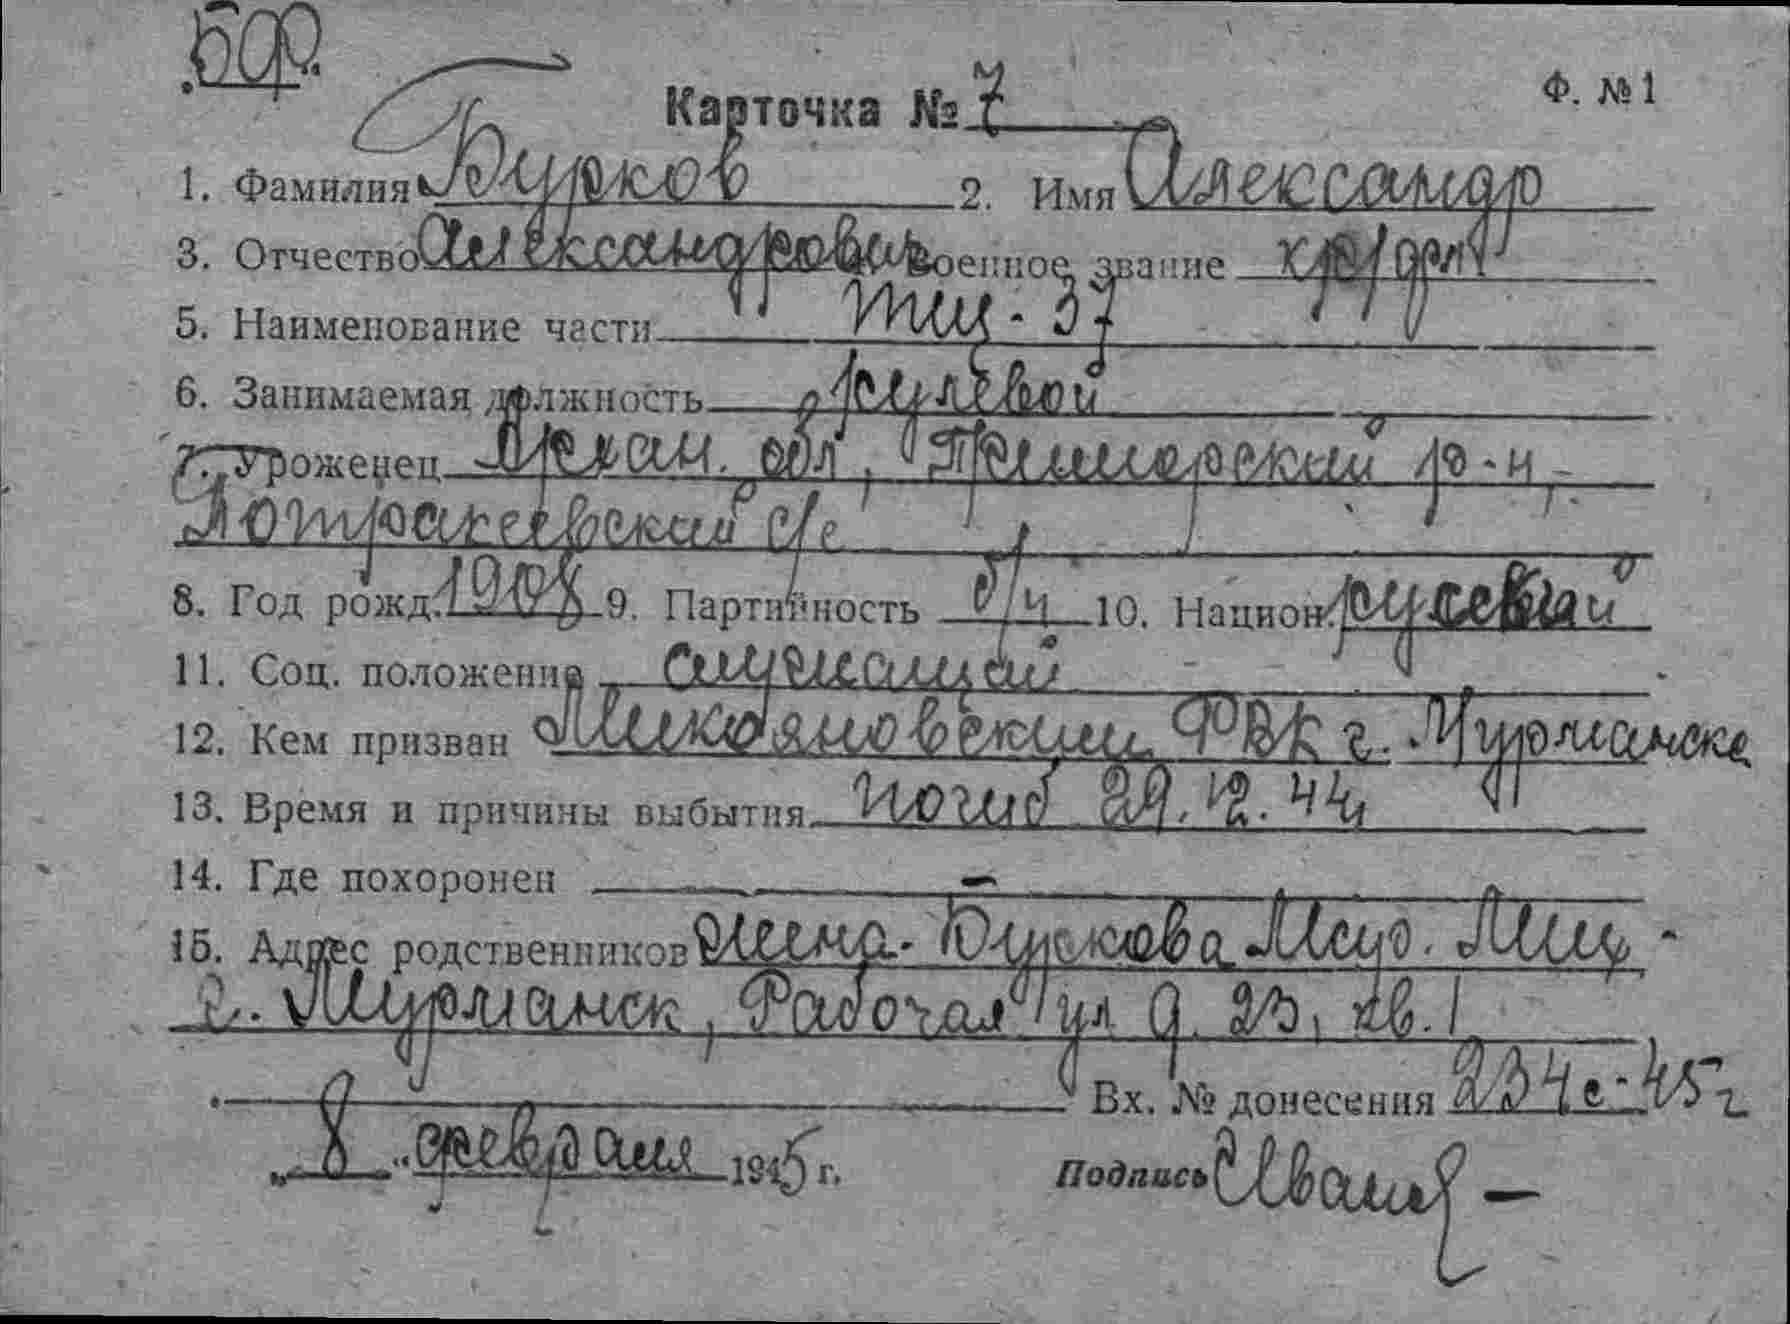 Карточка № 7 Ф. № 1
1. Фамилия Бурков 2. Имя Александр
3. Отчество Александрович Военное звание кр/фл
5. Наименование части ТЩ-37
6. Занимаемая должность рулевой
7. Уроженец Архан. обл, Приморский р-н,
8. Год рожд. 1908 9. Партийность б/п 10. Национ. русский
11. Соц. положение служащий
12. Кем призван Микояновским РВК г. Мурманска
13. Время и причины выбытия погиб 29.12.44
14. Где похоронен —
15. Адрес родственников Жена - Буркова
г. Мурманск, Рабочая ул д. 23, кв. 1
Вх. № донесения 234с-45г
„8" февраля 1945 г. Подпись